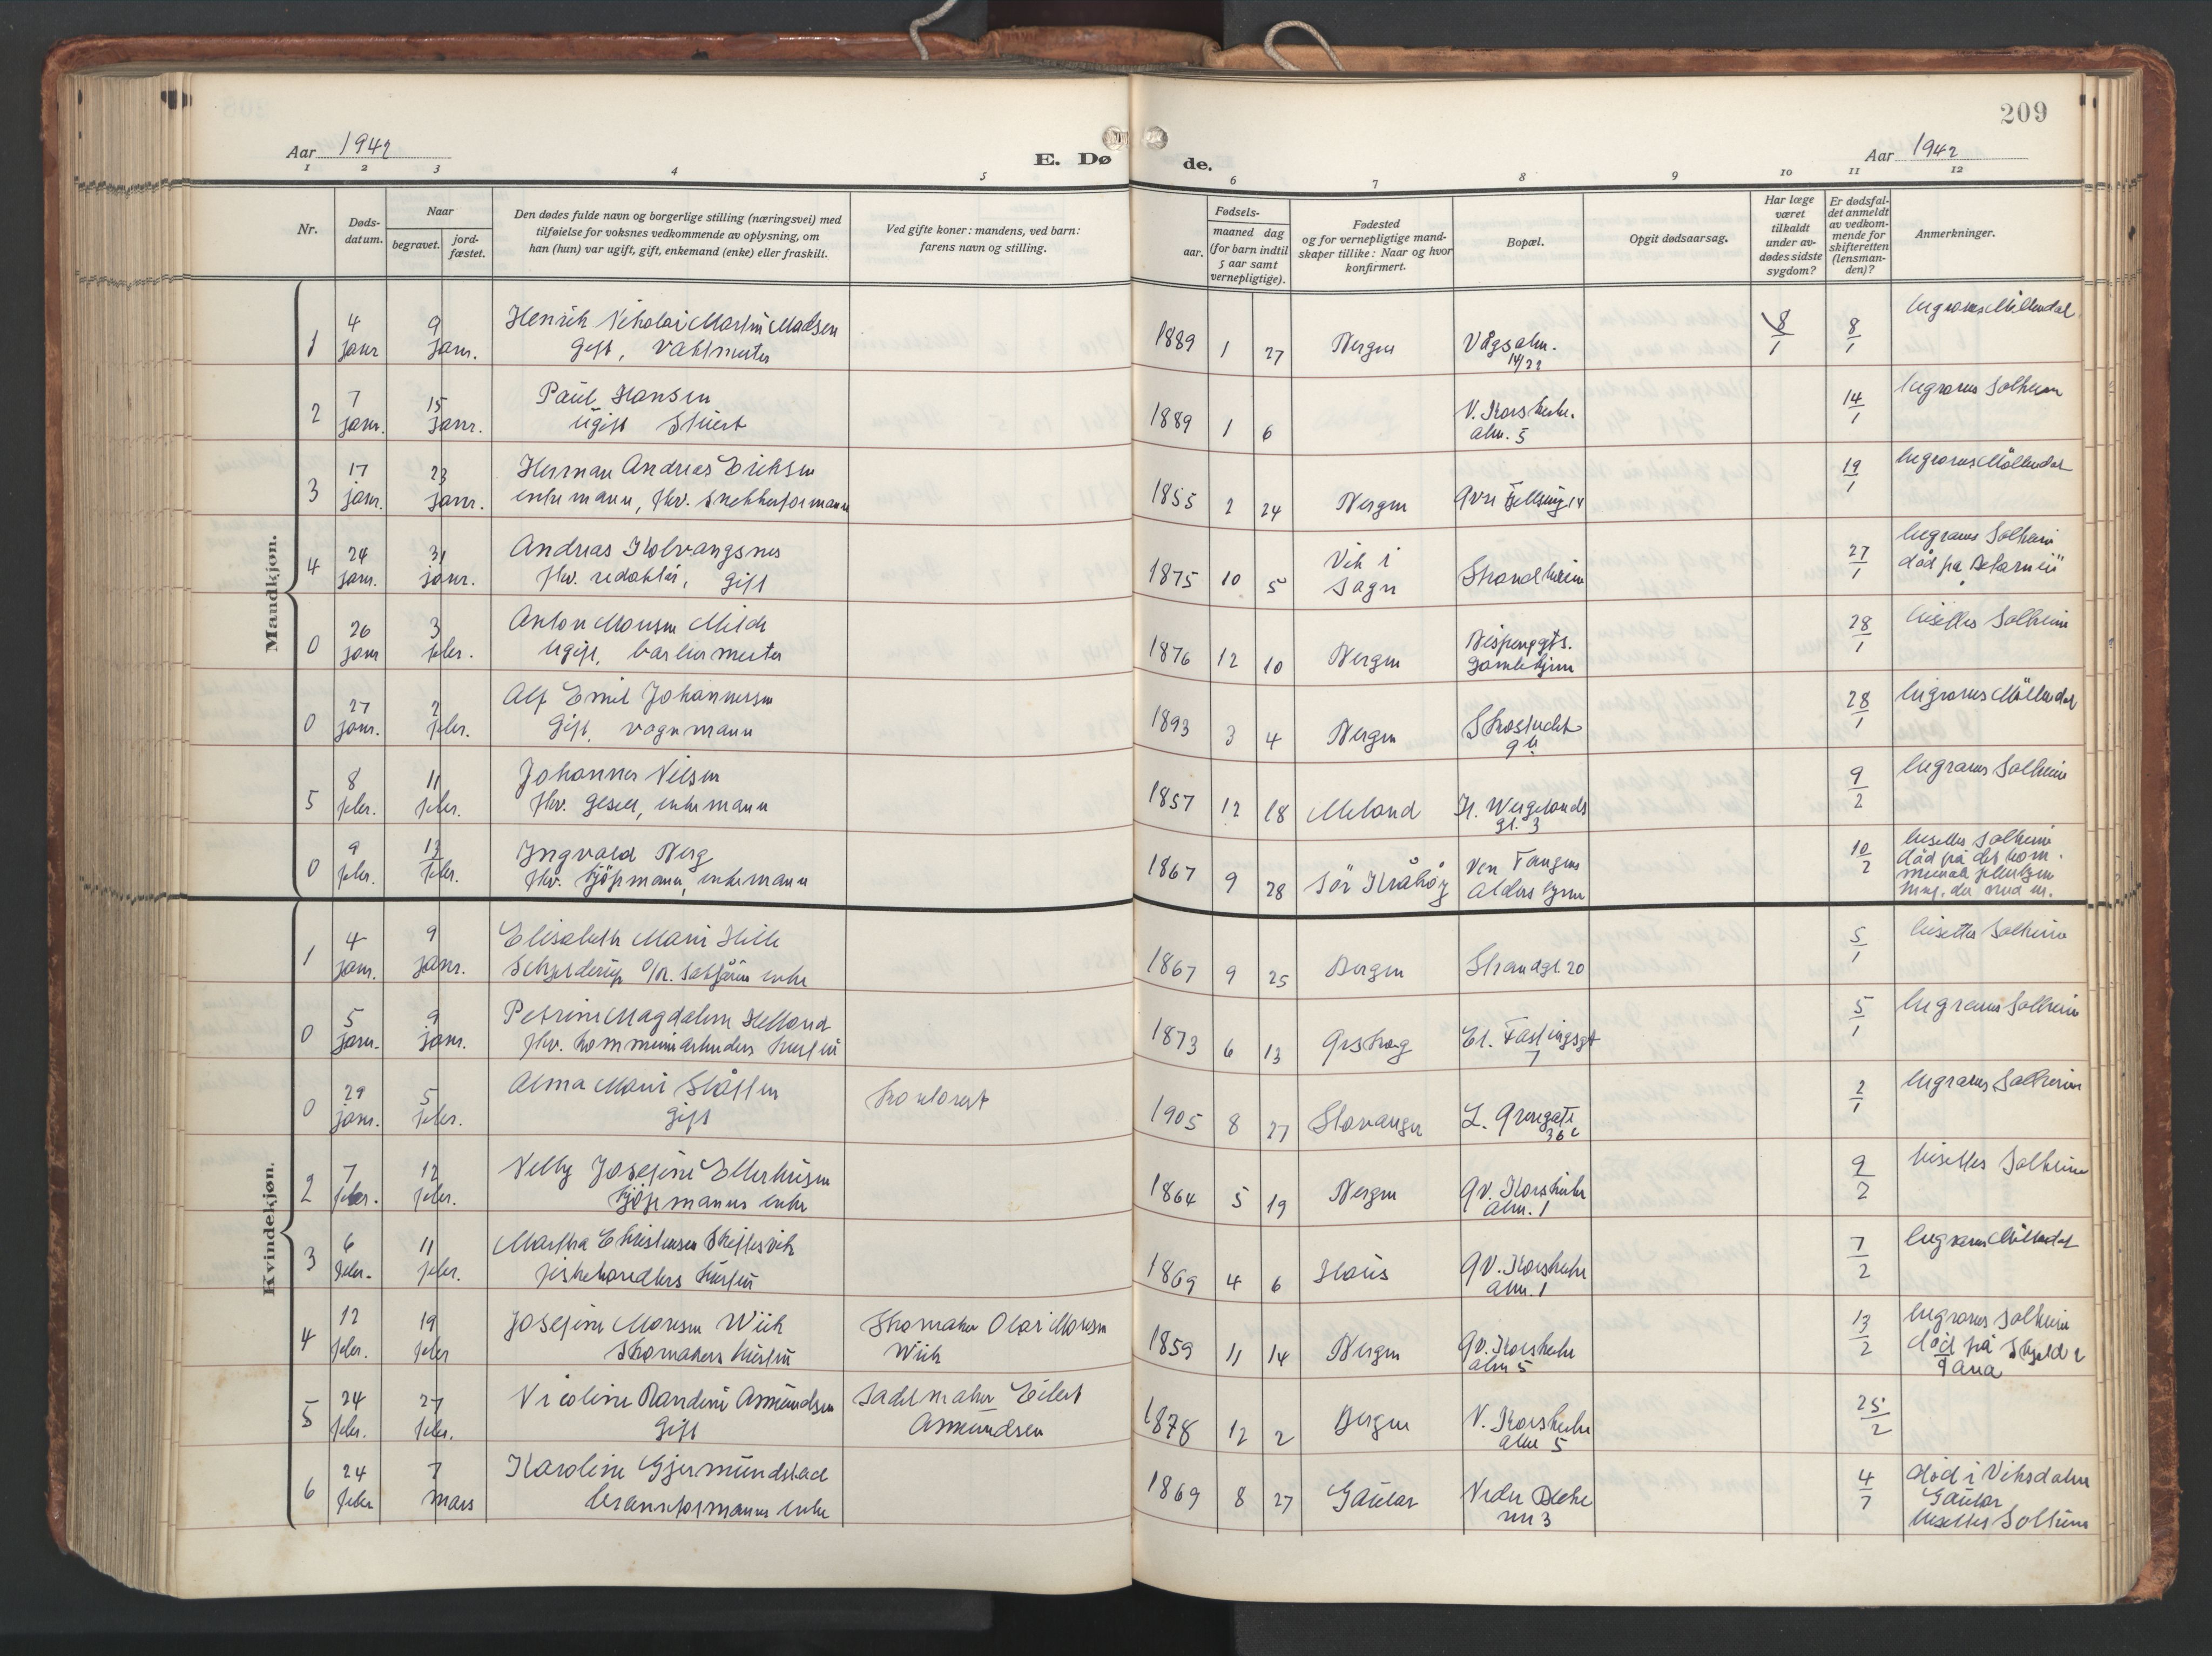 209
Aar 1942
E. Dø
de.
Aar 1942
1 2 3 4 5 6 7 8 9 10 11 12
Nr.
Døds-
datum.
Naar
begravet.
jord-
fæstet.
Den dødes fulde navn og borgerlige stilling (næringsvei) med
tilføielse for voksnes vedkommende av oplysning, om
han (hun) var ugift, gift, enkemand (enke) eller fraskilt.
Ved gifte koner: mandens, ved barn:
farens navn og stilling.
Fødsels-
aar.
maaned dag
(for barn indtil
5 aar samt
vernepligtige).
Fødested
og for vernepligtige mand-
skaper tillike: Naar og hvor
konfirmert.
Bopæl.
Opgit dødsaarsag.
Har læge
været
tilkaldt
under av-
dødes sidste
sygdom?
Er dødsfal-
det anmeldt
av vedkom-
mende for
skifteretten
(lensman-
den)?
Anmerkninger.
Mandkjøn.
1 4 janr 9 janr. Henrik Nikolai Martin Madsen
gift, vaktmester
1889 1 27 Bergen Vågsalm.
14/22
8/1 8/1 begraves Møllendal
2 7 janr. 15 janr. Paul Hansen
ugift Stuert
1889 1 6 V. Korskirke.
alm. 5
14/1 begraves Solheim
3 17 janr. 23 janr. Herman Andreas Eriksen
enkemann, fhv. snekkerformann
1855 2 24 Bergen Øvre Fjellsmug 14
19/1 begraves Møllendal
4 24 janr. 31 janr. Andreas Kolvangsnes
fhv. redaktør, gift
1875 10 5 Vik i
Sogn
Strandheim
27/1 begraves Solheim
død på Betanien
0 26 janr 3 febr. Anton Monsen Milde
ugift, barbermester
1876 12 10 Bergen Bispenggts.
gamlehjem
28/1 bisettes Solheim
0 27 janr. 2 febr. Alf Emil Johannessen
Gift, vognmann
1893 3 4 Bergen
28/1 begraves Møllendal
5 8 febr. 11 febr. Johannes Nilsen
fhv. gesell, enkemann
1857 12 18 Meland H. Wergelands
gt. 3
9/2 begraves Solheim
0 9 febr. 13 febr. Ingvald Berg
fhv. kjøpmann, enkemann
1867 9 28 Sør Kråkøy
Alders hjem
10/2 bisettes Solheim
død på det kom.
Kvindekjøn.
1 4 janr. 9 janr. Elisabeth Marie Hille
Schjelderup O/R. sakførers enke
1867 9 25 Bergen Strandgt. 20
5/1 bisettes Solheim
0 5 janr. 9 janr. Petrine Magdalene Helland
fhv. kommunearbeiders hustru
1873 6 13 Ørskog Ed. Fastingsgt
7
5/1 begraves Solheim
0 29 janr. 5 febr. Alma Marie Slåtten
gift
Kontorist
1905 8 27 Stavanger L. Øvregate
36 c
2/1 begraves Solheim
2 7 febr. 12 febr. Nelly Josefine Ellerhusen
kjøpmanns enke
1864 5 19 Bergen Øv. Korskirke
alm. 1
9/2 bisettes Solheim
3 6 febr. 11 febr. Martha Christensen
fiskehandlers hustru
1869 4 6 Haus Øv. Korskirke
alm. 1
7/2 begraves Møllendal
4 12 febr. 19 febr Josefine Monsen Wiik
Skomakers hustru
Skomaker Olai Monsen
Wiik
1859 11 14 Bergen Øv. Korskirke
alm 5
13/2 begraves Solheim
død på Skjold i
Fana
5 24 febr. 27 febr. Nicoline Randine Asmundsen
Gift
Sadelmaker Eilert
Asmundsen
1878 12 2 Bergen V. Korskirke
alm 5
25/2
6 24 febr 7 mars Karoline Gjermundstad
branformanns enke
1869 8 27 Gaular Nedre
nr. 3
4/7 død i Viksdalen
Gaular
bisettes Solheim